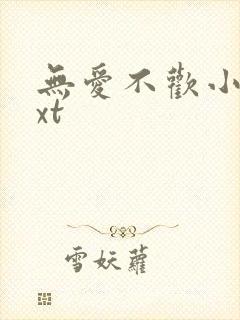 無愛不歡小
xt
雪妖蘿